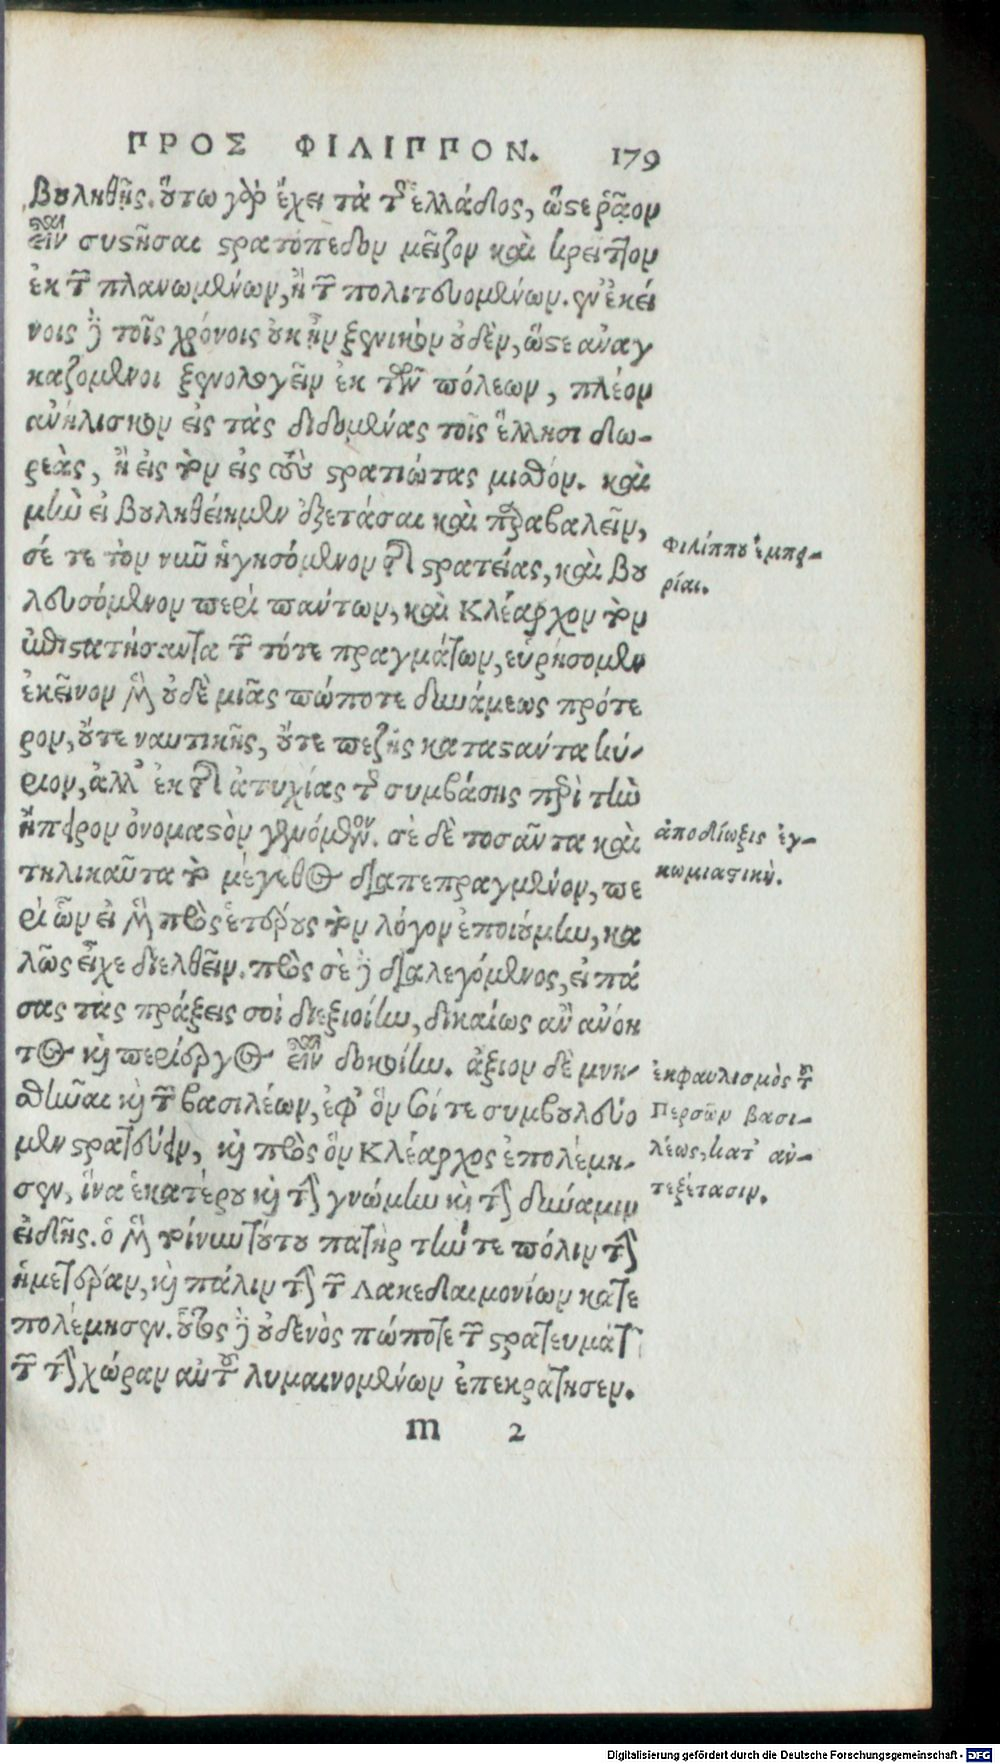 ΠΡΟΣ ΦΙΛΙΠΠΟΝ. 179
βουληθῇς. οὕτω γὰρ ἔχει τὰ τῆς ἑλλάδος, ὥστε ῥᾷον
εἶναι συστῆσαι στρατόπεδον μεῖζον καὶ κρεῖττον
ἐκ τῶν πλανωμένων, ἢ τῶν πολιτευομένων. ἐν ἐκεί
νοις δὲ τοῖς χρόνοις οὐκ ἦν ξενικὸν οὐδὲν, ὥστε ἀναγ
καζόμενοι ξενολογεῖν ἐκ τῶν πόλεων, πλέον
ἀνήλισκον εἰς τὰς διδομένας τοῖς ἕλλησι δω-
ρεὰς, ἢ εἰς τὴν εἰς τοὺς στρατιώτας μισθόν. καὶ
μὴν εἰ βουληθείημεν ἐξετάσαι καὶ παραβαλεῖν,
σέ τε τὸν νῦν ἡγησόμενον τῆς στρατείας, καὶ βου
λευσόμενον περὶ πάντων, καὶ Κλέαρχον τὸν
ἐπιστατήσαντα τῶν τότε πραγμάτων, εὑρήσομεν
ἐκεῖνον μὲν οὐδὲ μιᾶς πώποτε δυνάμεως πρότε
ρον, οὔτε ναυτικῆς, οὔτε πεζῆς καταστάντα κύ-
ριον, ἀλλ' ἐκ τῆς ἀτυχίας τῆς συμβάσης περὶ τὴν
ἤπειρον ὀνομαστὸν γενόμενον. σὲ δὲ τοσαῦτα καὶ
τηλικαῦτα τὸ μέγεθος διαπεπραγμένον, πε
ρὶ ὧν εἰ μὲν πρὸς ἑτέρους τὸν λόγον ἐποιούμην, κα
λῶς εἶχε διελθεῖν. πρὸς σὲ δὲ διαλεγόμενος, εἰ πά
σας τὰς πράξεις σοὶ διεξιοίην, δικαίως ἂν ἀνόη
τος καὶ περίεργος εἶναι δοκοίην. ἄξιον δὲ μνη-
σθῆναι καὶ τῶν βασιλέων, ἐφ' ὅν σοί τε συμβουλεύο
μεν στρατεύειν, καὶ πρὸς ὃν Κλέαρχος ἐπολέμη-
σεν, ἵνα ἑκατέρου καὶ τὴν γνώμην καὶ τὴν δύναμιν
εἰδῇς. ὁ μὲν τοίνυν τούτου πατὴρ τήν τε πόλιν τὴν
ἡμετέραν, καὶ πάλιν τὴν τῶν Λακεδαιμονίων κατε
πολέμησεν. οὗτος δὲ οὐδενὸς πώποτε τῶν στρατευμάτων
τῶν τὴν χώραν αὐτοῦ λυμαινομένων ἐπεκράτησεν.
m 2
Φιλίππου ἐμπει-
ρίαι.
ἀποδίωξις ἐγ-
κωμιαστική.
ἐκφαυλισμὸς τῶν
Περσῶν βασι-
λέως, κατ' ἀν-
τεξέτασιν.
Digitalisierung gefördert durch die Deutsche Forschungsgemeinschaft - DFG